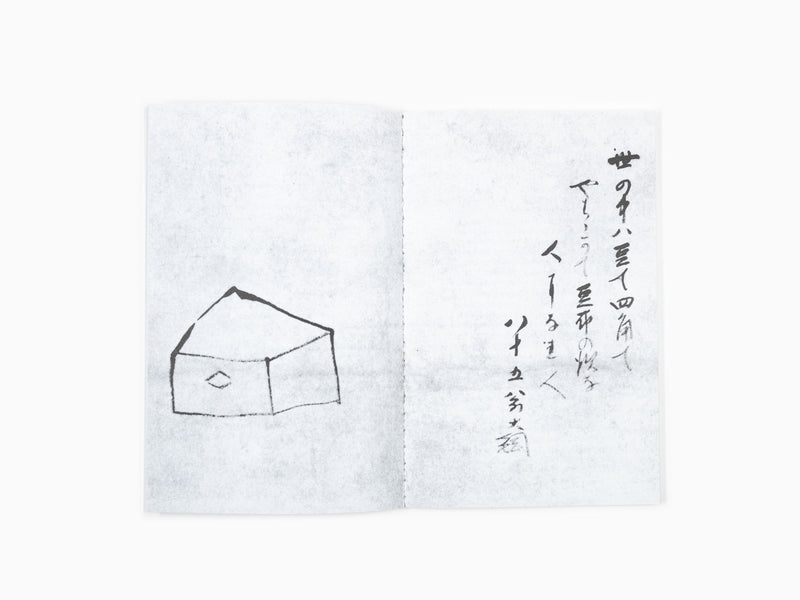 世の中ハ豆て四角て
やらこうて豆布の様な
人トなれ人
八十五翁